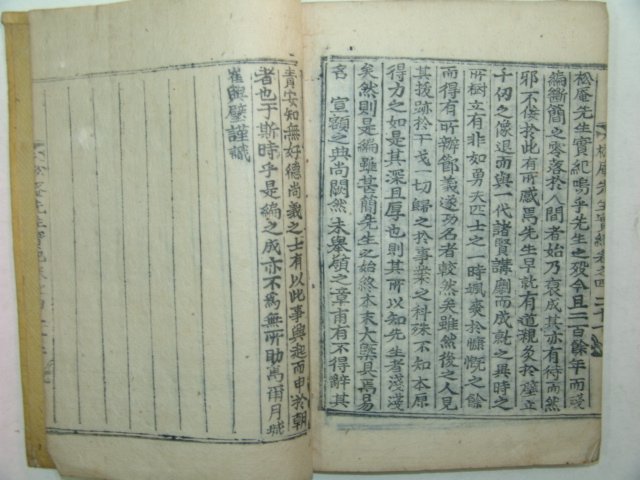 松庵先生實紀嗚乎先生之歿今且二百餘年而殘
編斷簡之零落於人間者始乃裒成其亦有待而然
邪不佞於此有所感焉先生早就有道親炙於壁立
千仞之像退而與一代諸賢講劘而成就之異時之
所樹立有非如勇夫匹士之一時颯爽於慷慨之餘
而得有所辦鄙義遂功名者較然矣雖然後之人見
其拔跡於干戈一切歸之於事業之科殊不知本原
得力之如是其深且厚也則其所以知先生者淺淺
矣然則是編雖甚簡先生之始終本末大槩具焉易
名宣額之典尚闕然未擧願之章甫有不得辭其
松庵先生實紀卷之四 二十一
責安知無好德尚義之士有以此事興起而申於朝
者也于斯時乎是編之成亦不爲無所助焉爾月城
崔興璧謹識